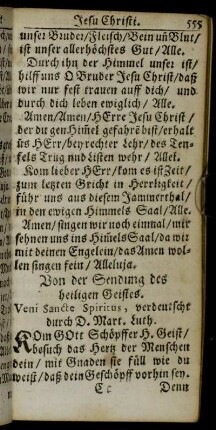 Jesu Christi. 555
unser Bruder/ Fleisch/ Bein uñ Blut/
ist unser allerhöchstes Gut/ Alle.
Durch ihn der Himmel unser ist/
hilff uns O Bruder Jesu Christ/ daß
wir nur fest trauen auff dich/ und
durch dich leben ewiglich/ Alle.
Amen/ Amen/ HErre Jesu Christ/
der du gen Him̃el gefahrē bist/ erhalt
ũs HErr/ bey rechter Lehr/ des Teu-
fels Trug und Listen wehr/ Allel.
Kom lieber HErr/ kom es ist Zeit/
zum letzten Gricht in Herrligkeit/
führ uns aus diesem Jammerthal/
in den ewigen Himmels Saal/ Alle.
Amen/ singen wir noch einmal/ wir
sehnen uns ins Him̃els Saal/ da wir
mit deinen Engelein/ das Amen wol-
len singen fein/ Alleluja.
Von der Sendung des
heiligen Geistes.
Veni Sancte Spiritus, verdeutscht
durch D. Mart. Luth.
KOm GOtt Schöpffer H. Geist/
besuch das Hertz der Menschen
dein/ mit Gnaden sie füll wie du
weist/ daß dein Geschöpff vorhin sey.
Denn